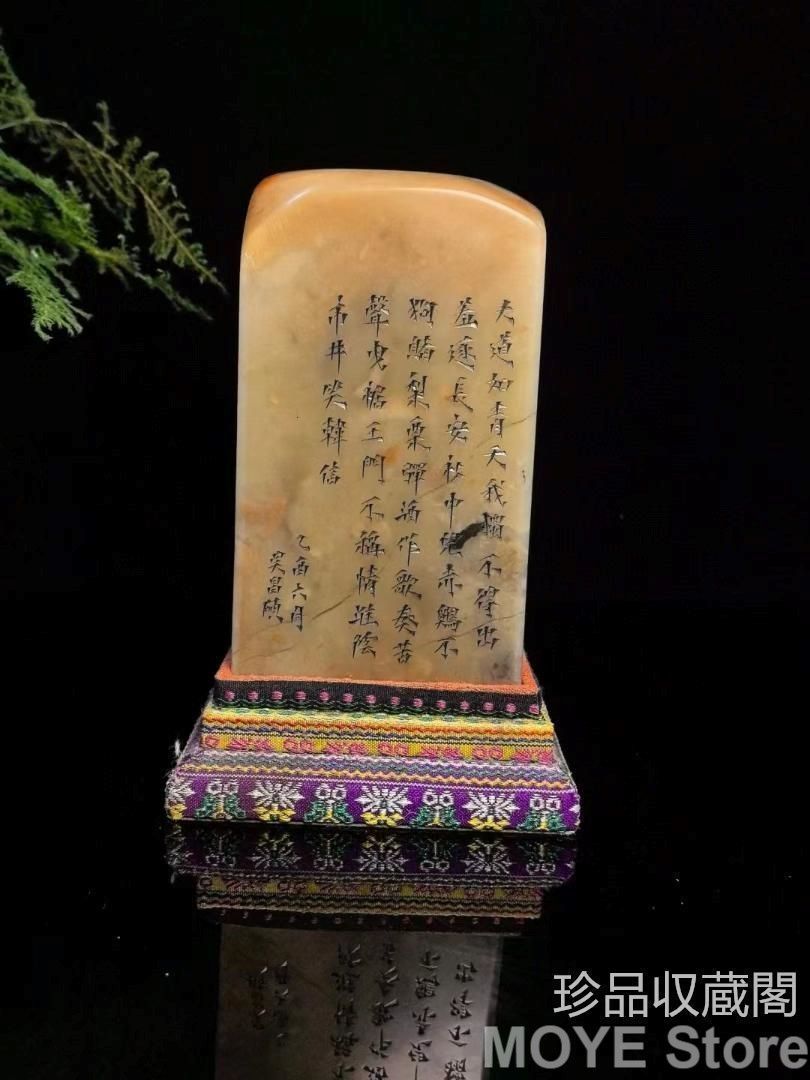 大道如青天我獨不得出
羞逐長安社中兒赤鷄不
狗賭梨栗彈作歌奏苦
聲曳裾王門不稱情淮陰
市井笑韓信
乙酉六月
吳昌碩
珍品收蔵閣
MOYE Store